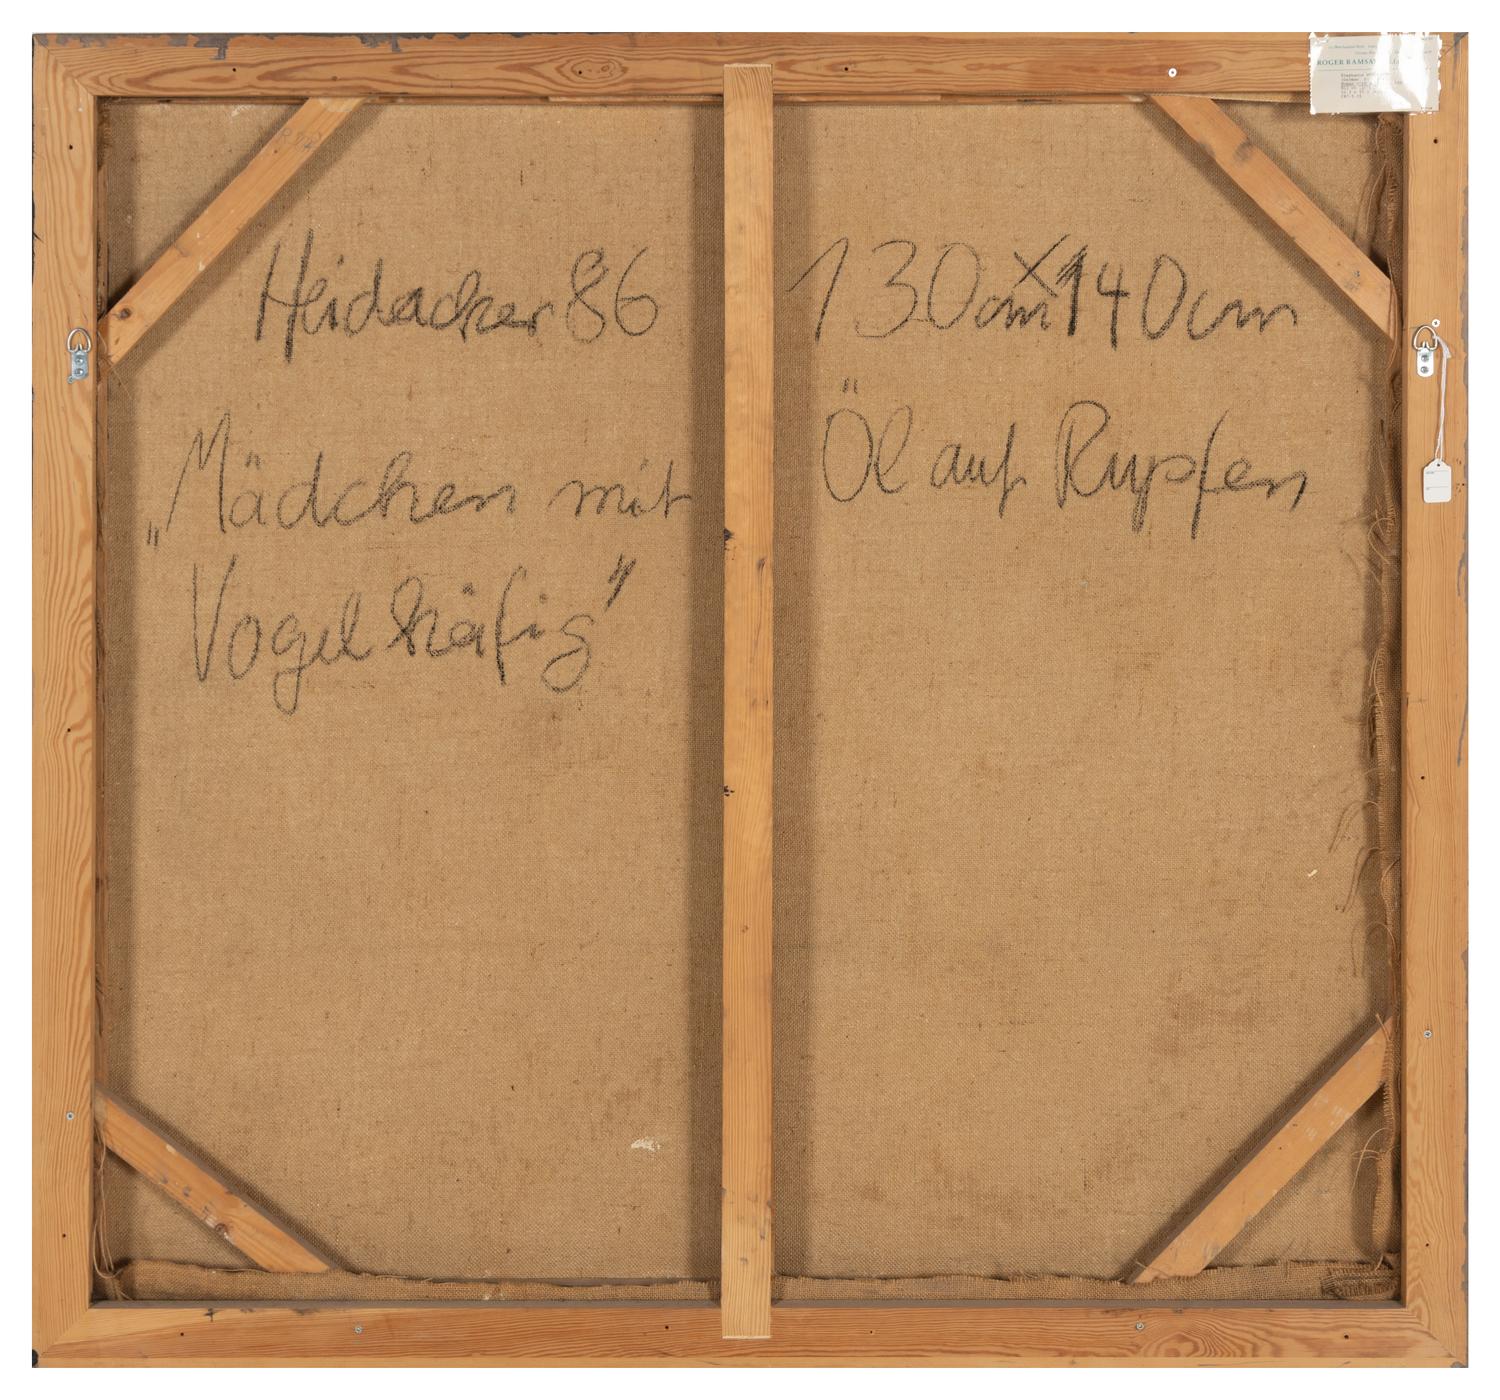 Heidacker 86
„Mädchen mit
Vogelkäfig"
130cm x 140cm
Öl auf Rupfen
ROGER RAMSAY